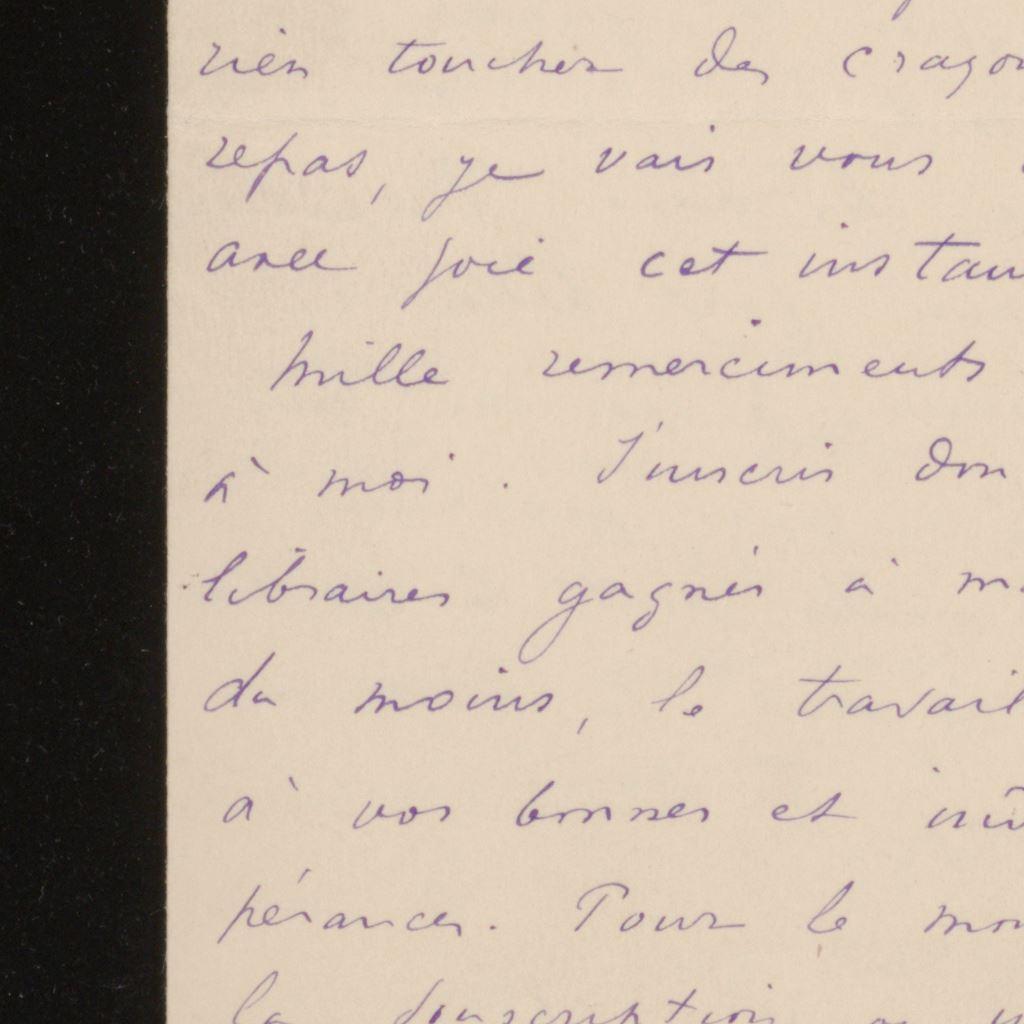 rien toucher des crayon
repas, je vais vous
avec joie cet instan
Mille remerciments
à moi. J'inscris don
libraires gagnés à m
du moins, le travail
à vos bonnes et
pérances. Pour le mom
la souscription